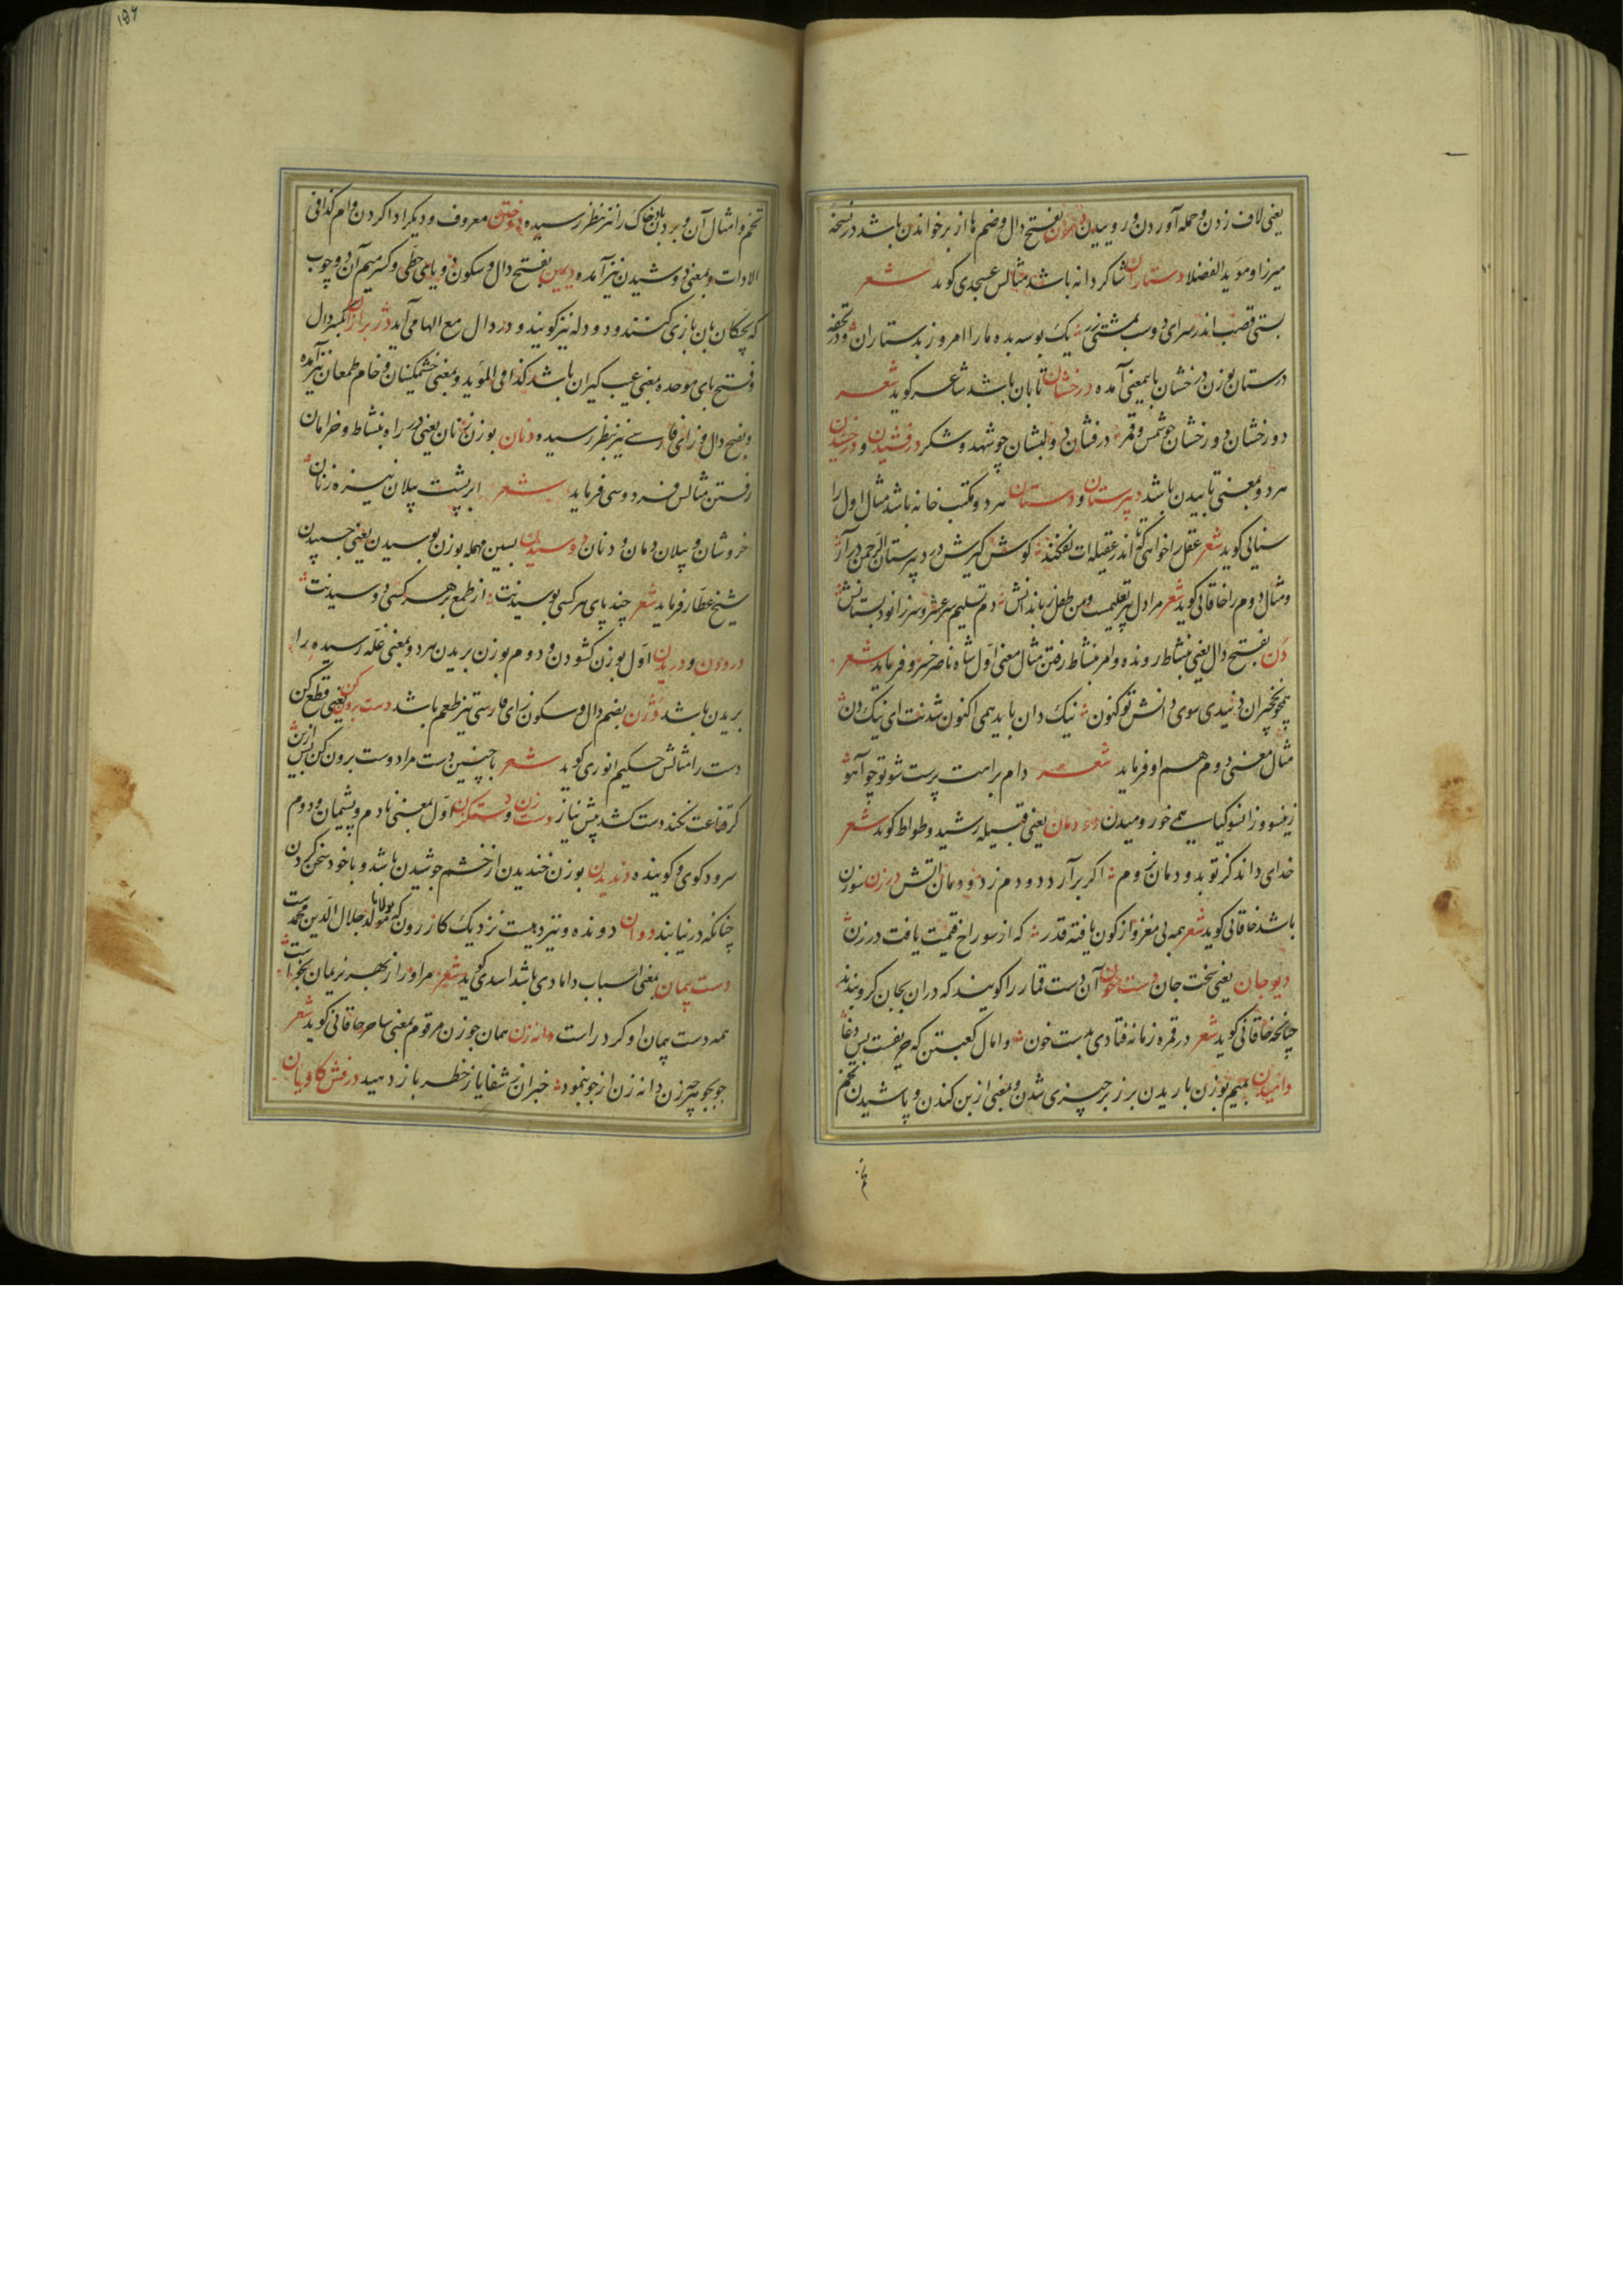 یعنی لاف زدن و حمله آوردن و روییدن دهون بفتح دال و ضم ها از بر خواندن باشد در نسخهٔ
میرزا و مؤید الفضلا دستاران شاکردانه باشد مثالش عسجدی کوید شعر
بستی قصب اندر سرای دوست بمشتی زر یک بوسه بده ما را امروز بدستاران و در تحفه
درستان بوزن درخشان باینمعنی آمده درخشان تابان باشد شاعر کوید شعر
دو رخشان دو رخشان چو شمس و قمر درفشان دو لبشان چو شهد و شکر درفشیدن و درخشیدن
هر دو بمعنی تابیدن باشد دبیرستان و دبستان هر دو مکتب خانه باشد مثال اول را
سنایی کوید شعر عقل را خواهی که تا اندر عقیله‌ات نفکند کوش کیرش در دبیرستان الرحمن درآر
و مثال دوم را خاقانی کوید شعر مرا دل پیر تعلیمست و من طفل زباندانش دم تسلیم سر عشر و سر زانو دبستانش
دن بفتح دال یعنی بنشاط رونده و امر بنشاط رفتن مثال معنی اول شاه ناصر خسرو فرماید شعر
همچو نخچیران دنیدی سوی دانش تو کنون نیک دان باید همی اکنون شدنت ای نیک دن
مثال معنی دوم هم او فرماید شعر دام براهت پرست شو تو چو آهو
زینسو و زانسو کیا همی خور و میدن دودمان یعنی قبیله رشید وطواط کوید شعر
خدای داند کز تو بدودمان نروم اکر برآرد دودم ز دودمان آتش درزن سوزن
باشد خاقانی کوید شعر همه بی مغز و از کون یافته قدر که از سوراخ قیمت یافت درزن
دیو جان یعنی سخت جان دست خون آن دست قمار را کویند که در آن بجان کرو بندند
چنانچه خاقانی کوید شعر در قمره زمانه فتادی بدست خون وامال کعبتین که حریفست بس دغا
دامیدن بمیم بوزن باریدن بر زبر چیزی شدن و بمعنی از بن کندن و پاشیدن تخم
تخم
۱۵۷
تخم و امثال آن و بردن باد خاک را نیز بنظر رسیده دوختن معروف و دیکر ادا کردن وام کذا فی
الادات و بمعنی دوشیدن نیز آمده دیمین بفتح دال و سکون و یای حطی و کسر میم آن دو چوب
که بچکان بان بازی کنند و دودله نیز کویند و در دال مع الها می آید دژ برازان بکسر دال
و فتح بای موحده بمعنی عیب کیران باشد کذا فی المؤید و بمعنی خشمکینان و خام طمعان نیز آمده
و بضم دال و زای فارسی نیز بنظر رسیده دنان بوزن زنان یعنی در راه بنشاط و خرامان
رفتن مثالش فردوسی فرماید شعر ابر پشت پیلان نیزه زنان
خروشان و پیلان دمان و دنان دوسیدن بسین مهمله بوزن بوسیدن یعنی چسپیدن
شیخ عطار فرماید شعر چند پای هر کسی بوسیدنت از طمع بر هر کسی دوسیدنت
درودن و دریدن اول بوزن کشودن و دوم بوزن بریدن هر دو بمعنی غله رسیده را
بریدن باشد دژن بضم دال و سکون زای فارسی تیز طعم باشد دست برون کن یعنی قطع کن
دست را مثالش حکیم انوری کوید شعر با چنین دست مرا دوست برون کن پس ازین
کر قناعت نکند دست کشد پیش نیاز دست زن و دستکزن اول بمعنی نادم و پشیمان و دوم
سرود کوی و کوینده دندیدن بوزن خندیدن از خشم جوشیدن باشد و با خود سخن کردن
چنانکه در نیابند دوان دونده و نیز دهیست نزدیک کازرون که مولد مولانا جلال الدین محمدست
دست پیمان بمعنی اسباب دامادی باشد اسدی کوید شعر مر او را از بهر نریمان بخواست
همه دست پیمان او کرد راست دانه زن همان جو زن مرقوم بمعنی ساحر خاقانی کوید شعر
جو بجو هر چه زن دانه زن از جو بنمود خبران ز شفا یا ز خطر باز دهید درفش کاویان